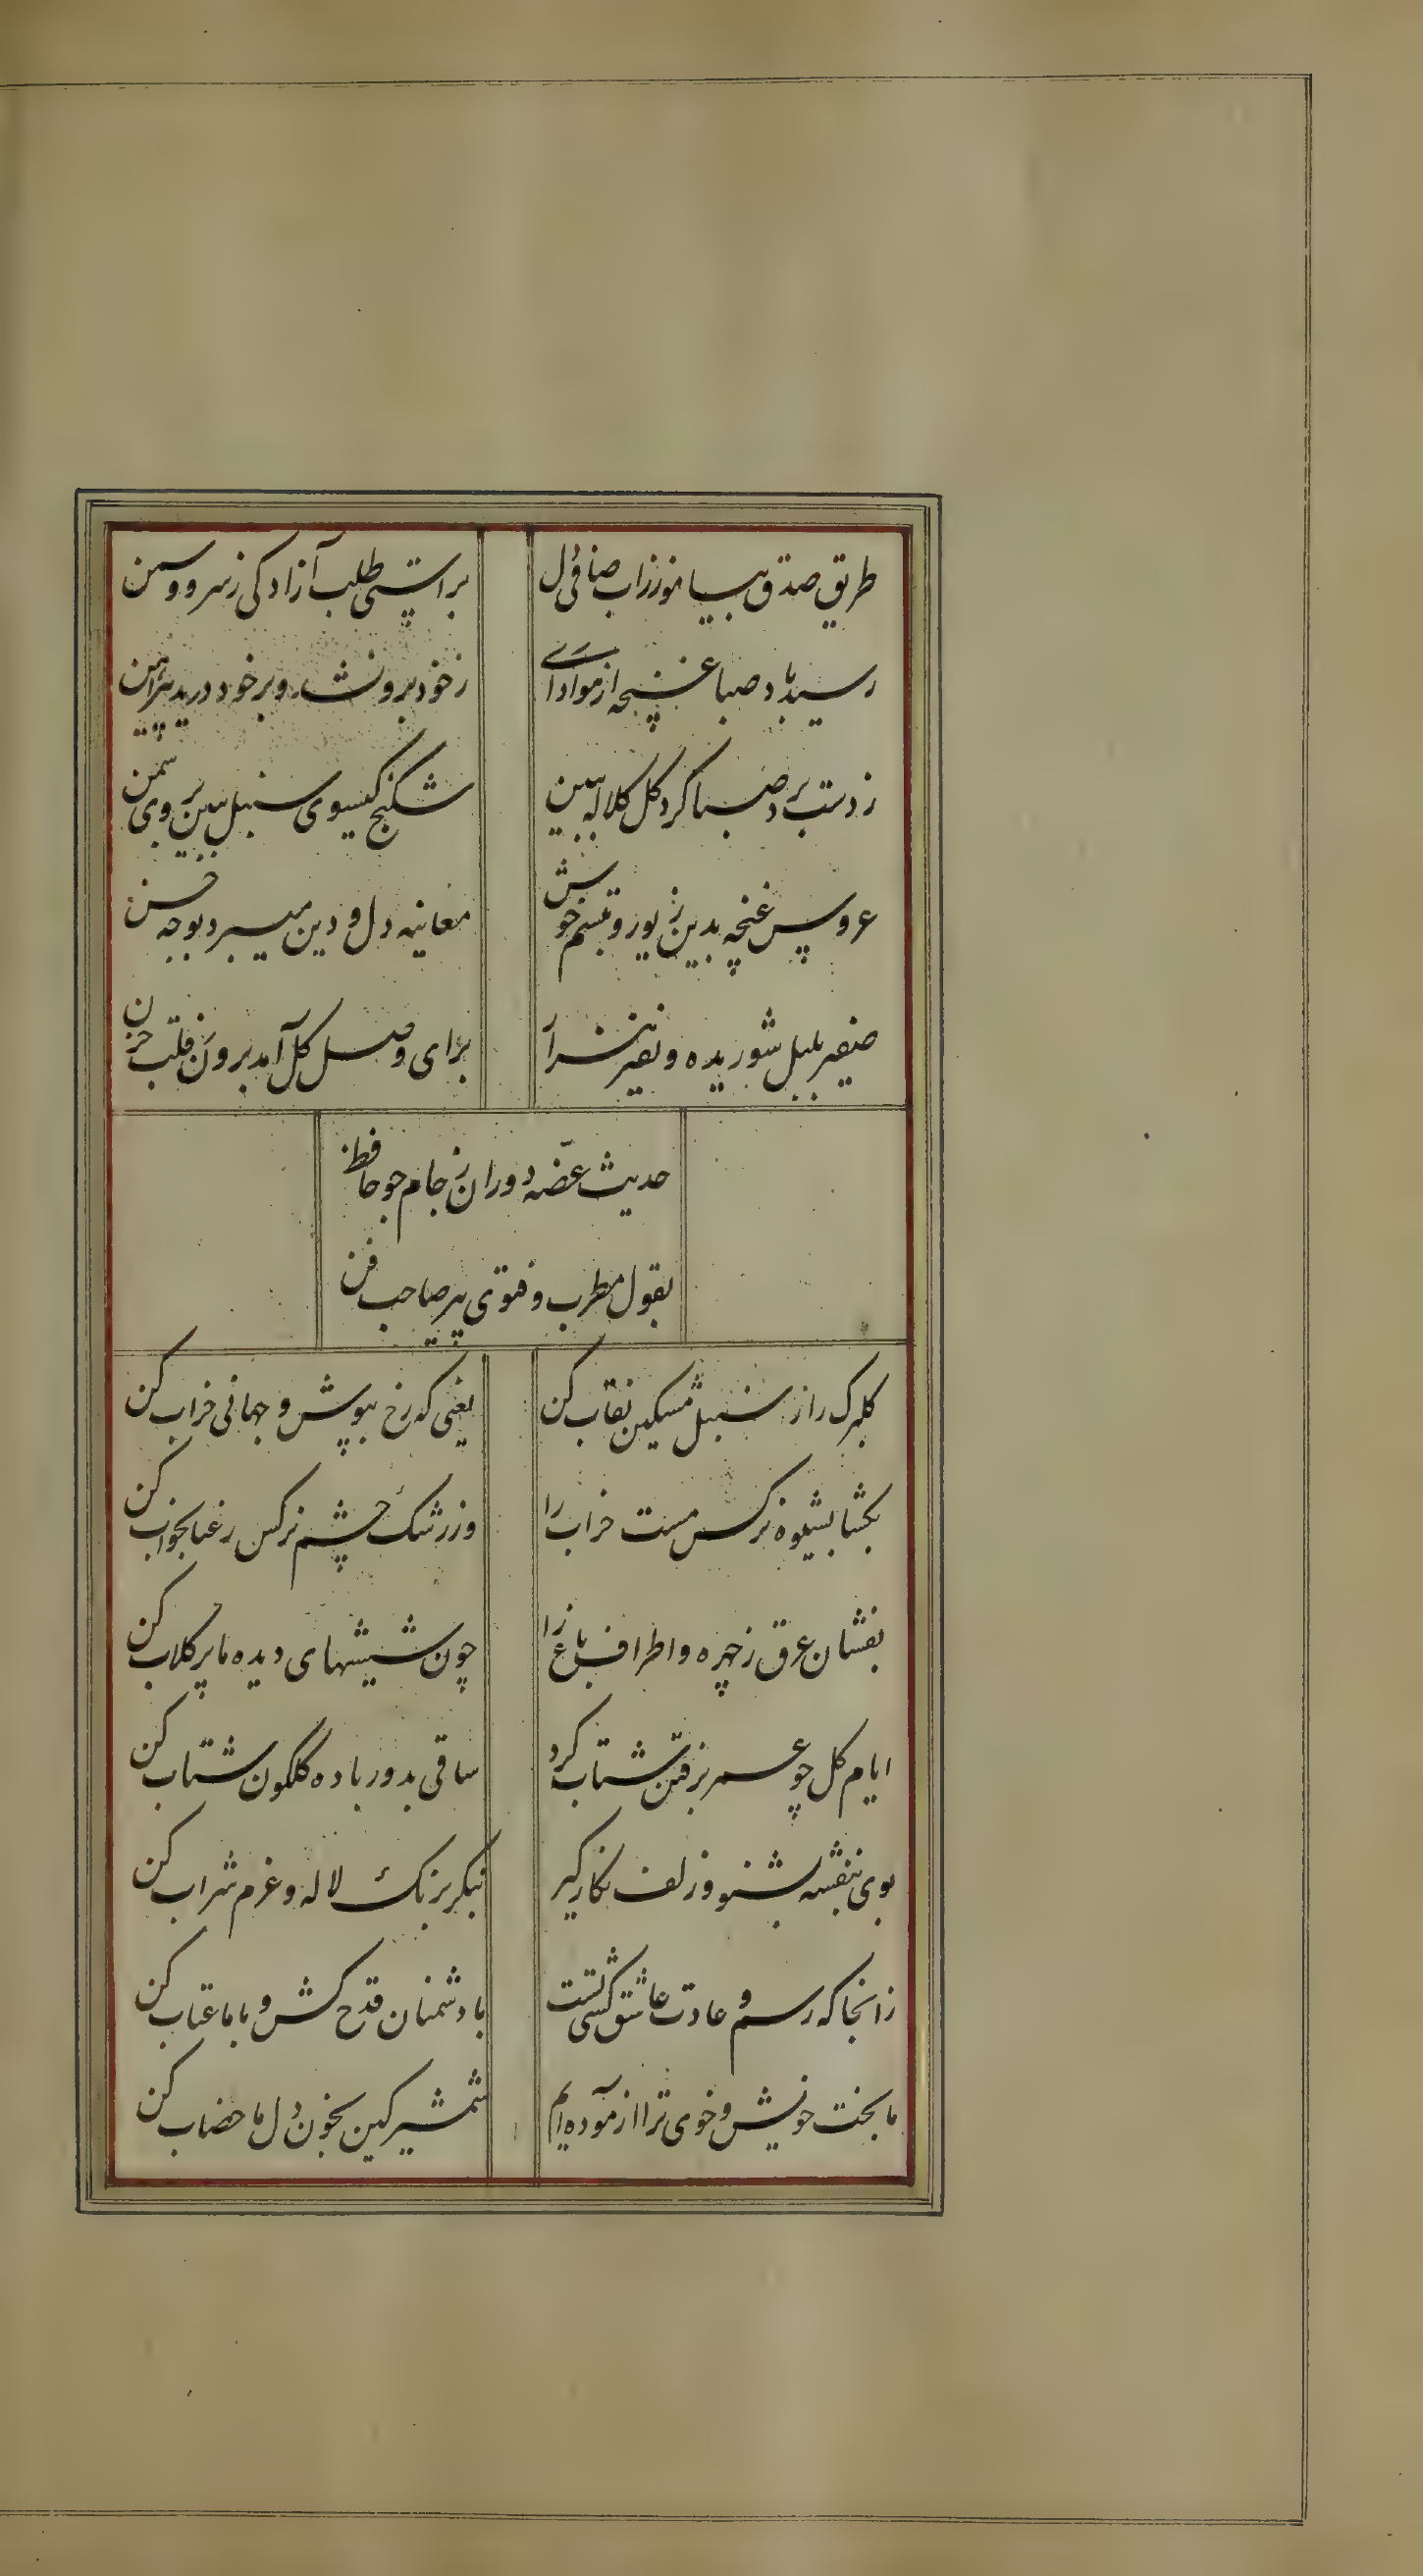 طریق صدق بیاموز زاب صافی دل براستی طلب آزادکی ز سرو و سمن
رسید باد صبا غنچه از هواداری ز خود برون شد و بر خود درید پیراهن
ز دست برد صبا کرد کل کلاله ببین شکنج کیسوی سنبل ببین بروی سمن
عروس غنچه بدین زیور و تبسم خوش معاینه دل و دین میبرد بوجه حسن
صفیر بلبل شوریده و نفیر هزار برای وصل کل آمد برون ز قلب حزن
حدیث غصه دوران ز جام جو حافظ
بقول مطرب و فتوی پیر صاحب فن
کلبرک را ز سنبل مشکین نقاب کن یعنی که رخ بپوش و جهانی خراب کن
بکشا بشیوه نرکس مست خراب را وز رشک چشم نرکس رعنا بخواب کن
بفشان عرق ز چهره و اطراف باغ را چون شیشهای دیده ما پر کلاب کن
ایام کل چو عمر برفتن شتاب کرد ساقی بدور باده کلکون شتاب کن
بوی بنفشه بشنو و زلف نکار کیر بنکر برنک لاله و عزم شراب کن
زانجا که رسم و عادت عاشق کشی تست با دشمنان قدح کش و با ما عتاب کن
ما بخت خویش و خوی ترا آزموده ایم شمشیر کین بخون دل ما خضاب کن